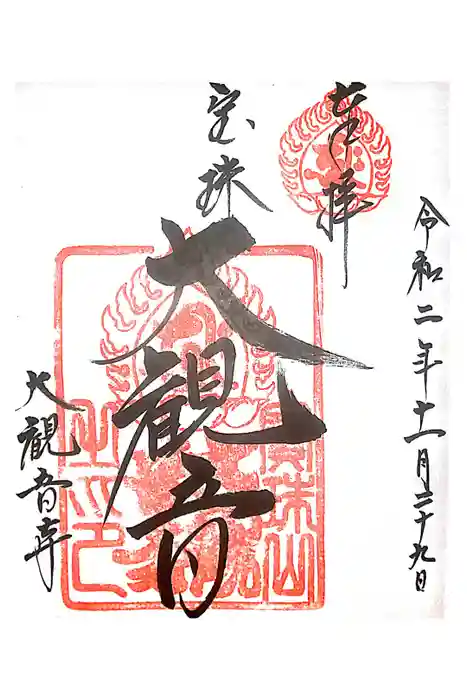 令和二年十一月二十九日
奉拝
宝珠
大観音
大観音寺
寳珠山
之印